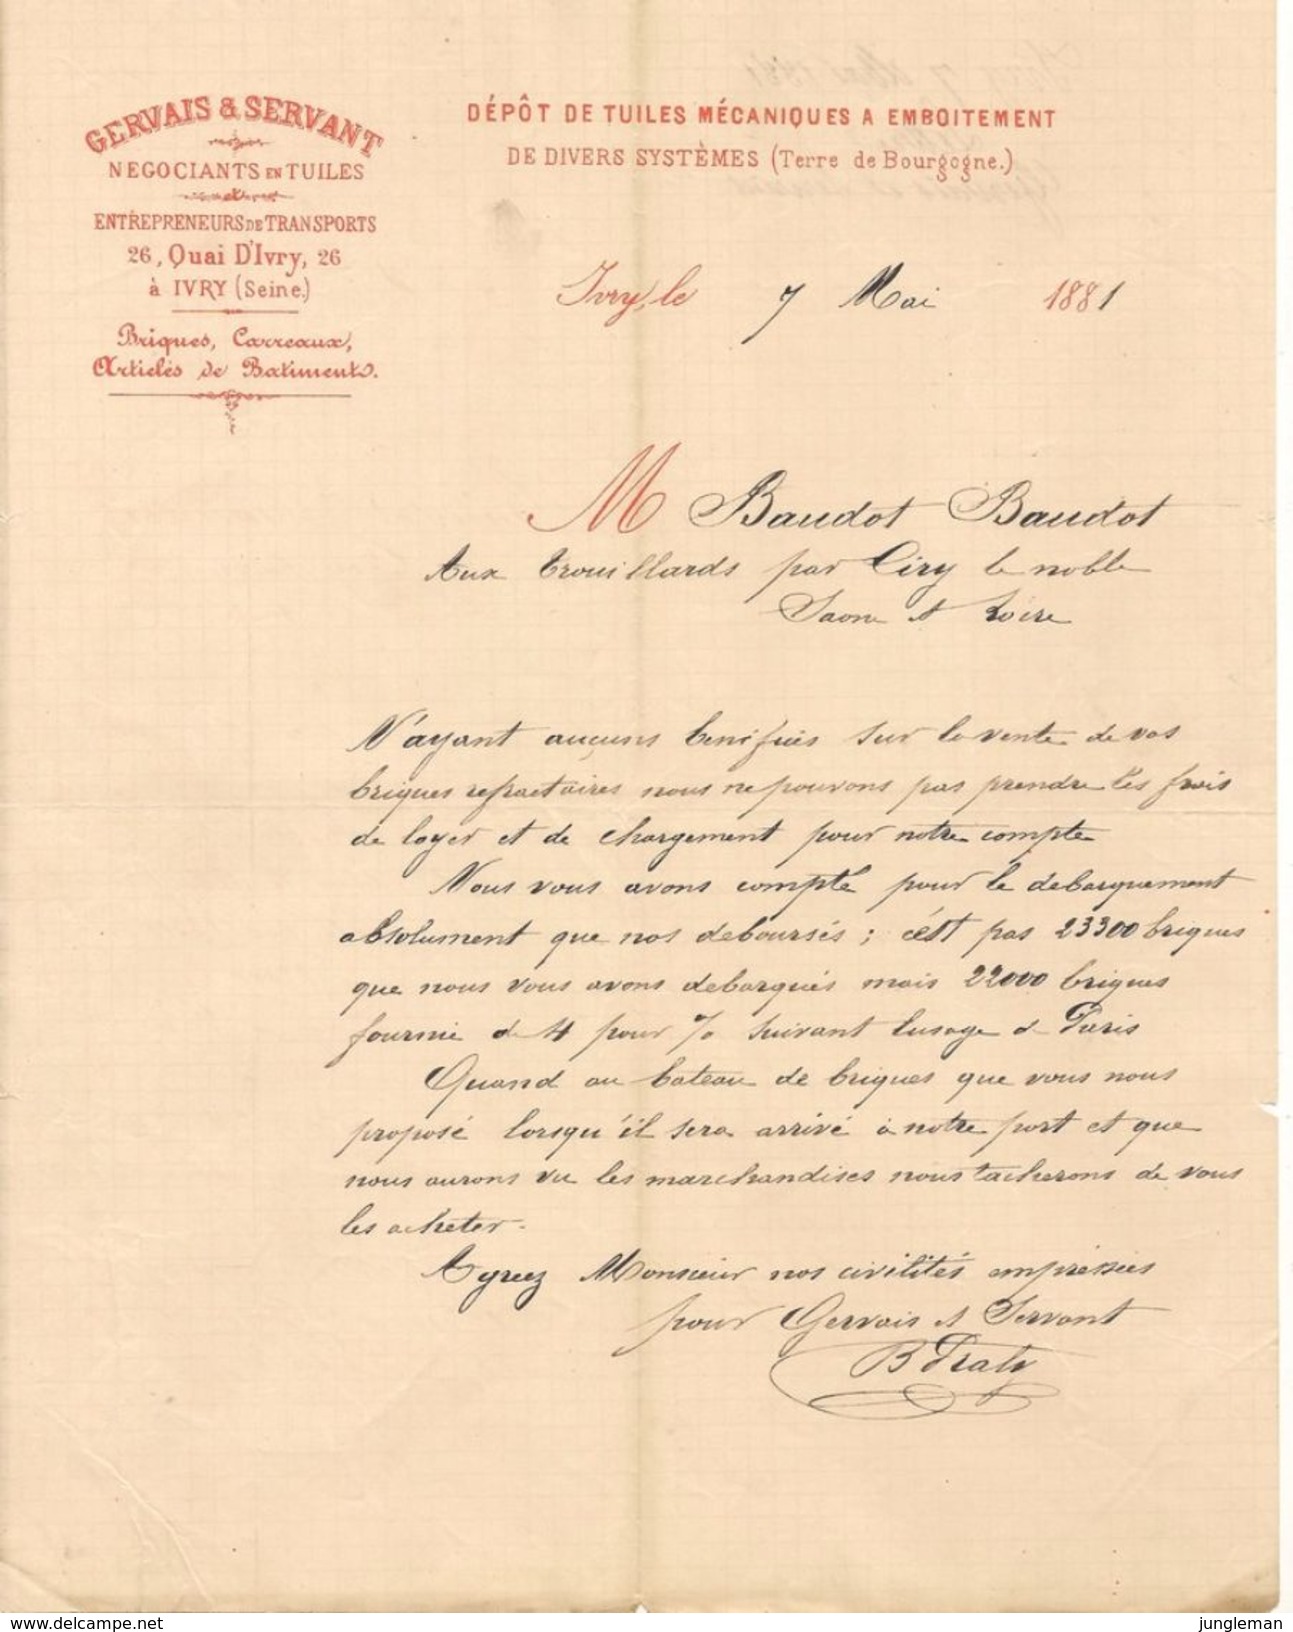 GERVAIS & SERVANT
NEGOCIANTS EN TUILES
ENTREPRENEURS DE TRANSPORTS
26, Quai D'Ivry, 26
à IVRY (Seine.)
Briques, Carreaux,
Articles de Batiments.
DÉPÔT DE TUILES MÉCANIQUES A EMBOITEMENT
DE DIVERS SYSTÈMES (Terre de Bourgogne.)
Ivry, le 7 Mai 1881
M Baudot Baudot
Aux trouillards par Ciry le noble
Saone et Loire
N'ayant aucuns benifices sur la vente de vos
briques refractaires nous ne pouvons pas prendre les frais
de loyer et de chargement pour notre compte
Nous vous avons compté pour le debarquement
absolument que nos deboursés ; c'est pas 23300 briques
que nous vous avons debarqués mais 22000 briques
fournie de 4 pour % suivant lusage de Paris
Quand au bateau de briques que vous nous
proposé lorsqu'il sera arrivé à notre port et que
nous aurons vu les marchandises nous tacherons de vous
les acheter.
Agreez Monsieur nos civilités empressées
pour Gervais et Servant
B
www.delcampe.net
jungleman